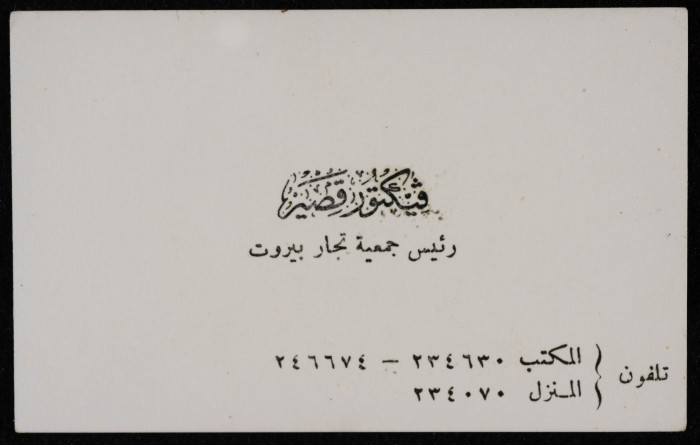 ڤيكتور قصير
رئيس جمعية تجار بيروت
تلفون
المكتب ٢٣٤٦٣٠ – ٢٤٦٦٧٤
المنزل ٢٣٤٠٧٠